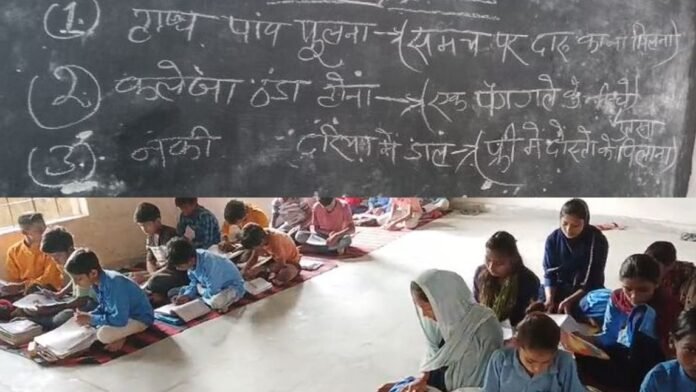 (1.) हाथ पांव फूलना→(समय पर दारू का ना मिलना)
(2.) कलेजा ठंडा होना→(एक पेग गले के नीचे
(3) नेकी - दरिया में डाल→(फ्री में दोस्तो को पिलाना)